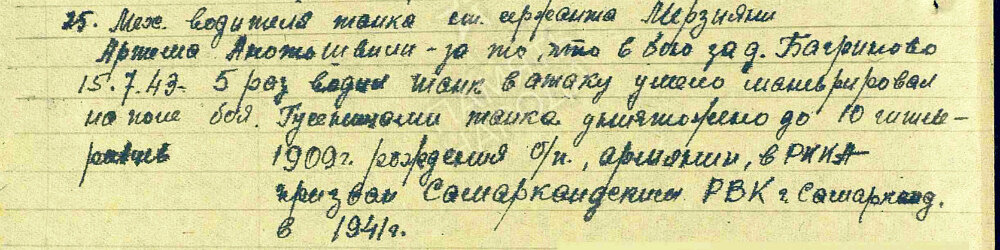 25. Мех. водителя танка ст. сержанта Мерзияни
Артема Анотошвили - за то, что в бою за д. Багриново
15.7.43- 5 раз водил танк в атаку умело маневрировал
на поле боя. Гусеницами танка уничтожено до 10 гитле-
ровцев 1909г. рождения б/п., армянин, в РККА
призван Самаркандским РВК г. Самарканд.
в 1941г.